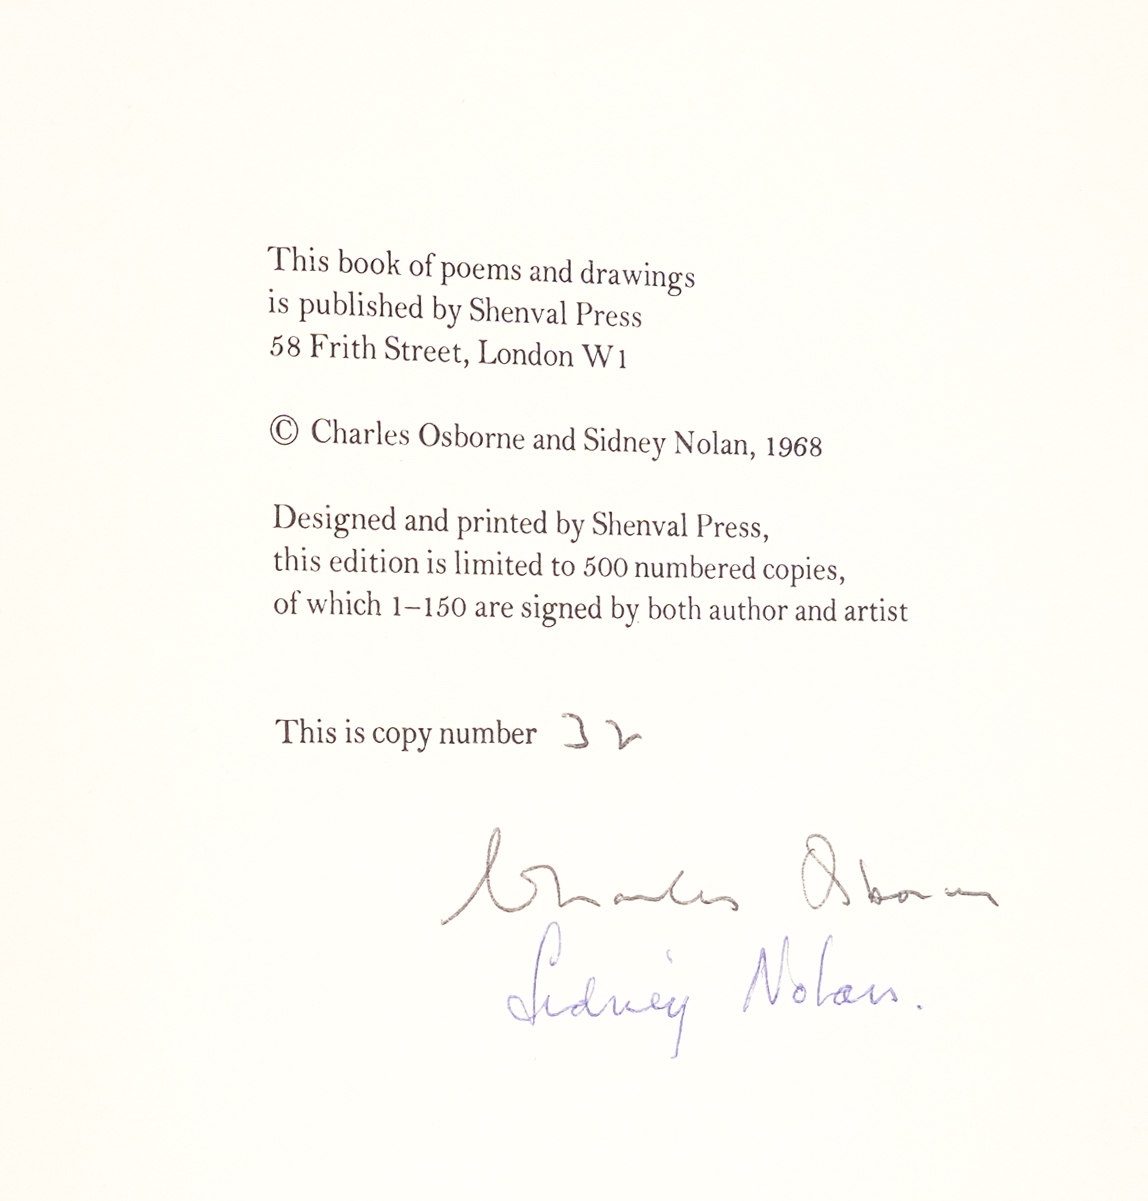 This book of poems and drawings
is published by Shenval Press
58 Frith Street, London W1
© Charles Osborne and Sidney Nolan, 1968
Designed and printed by Shenval Press,
this edition is limited to 500 numbered copies,
of which 1–150 are signed by both author and artist
This is copy number 32
Charles Osborne
Sidney Nolan.